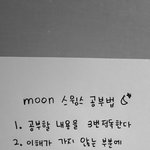 moon 스윔스 공부법
1. 공부할 내용을 3번 정독한다
2. 이해가 가지 않는 부분에